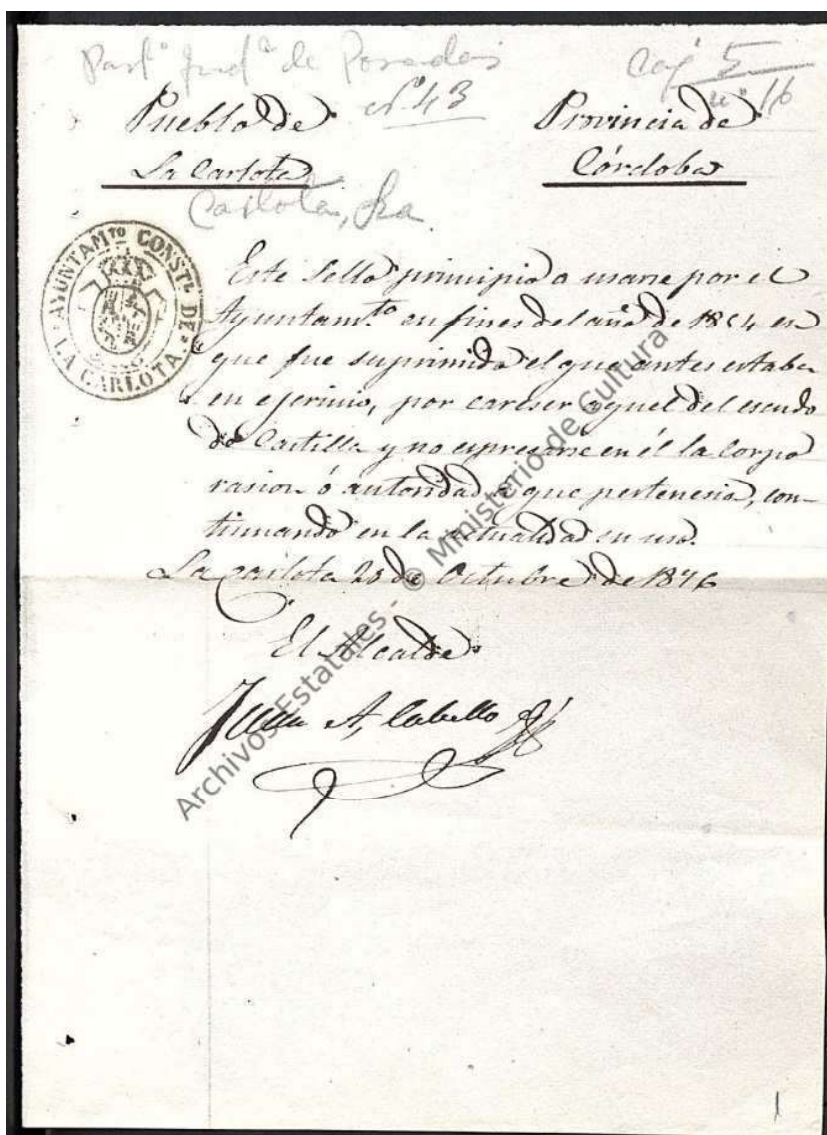 Part.º Jud.ª de Posadas
Caj 5
nº 43
nº 16
Pueblo de
La Carlota
Provincia de
Córdoba
Carlota, La
AYUNTAM.TO CONST.L DE
LA CARLOTA
Este sello principió a usarse por el
Ayuntam.to en fines del año de 1854 en
que fue suprimido el que antes estaba
en ejersisio, por careser aquel del escudo
de Castilla y no espresarse en él la corpo
rasion ó autoridad a que pertenesia, con-
tinuando en la actualidad su uso.
La Carlota 28 de Octubre de 1876
El Alcalde
Juan A, Cabello
Archivos Estatales - © Ministerio de Cultura
1